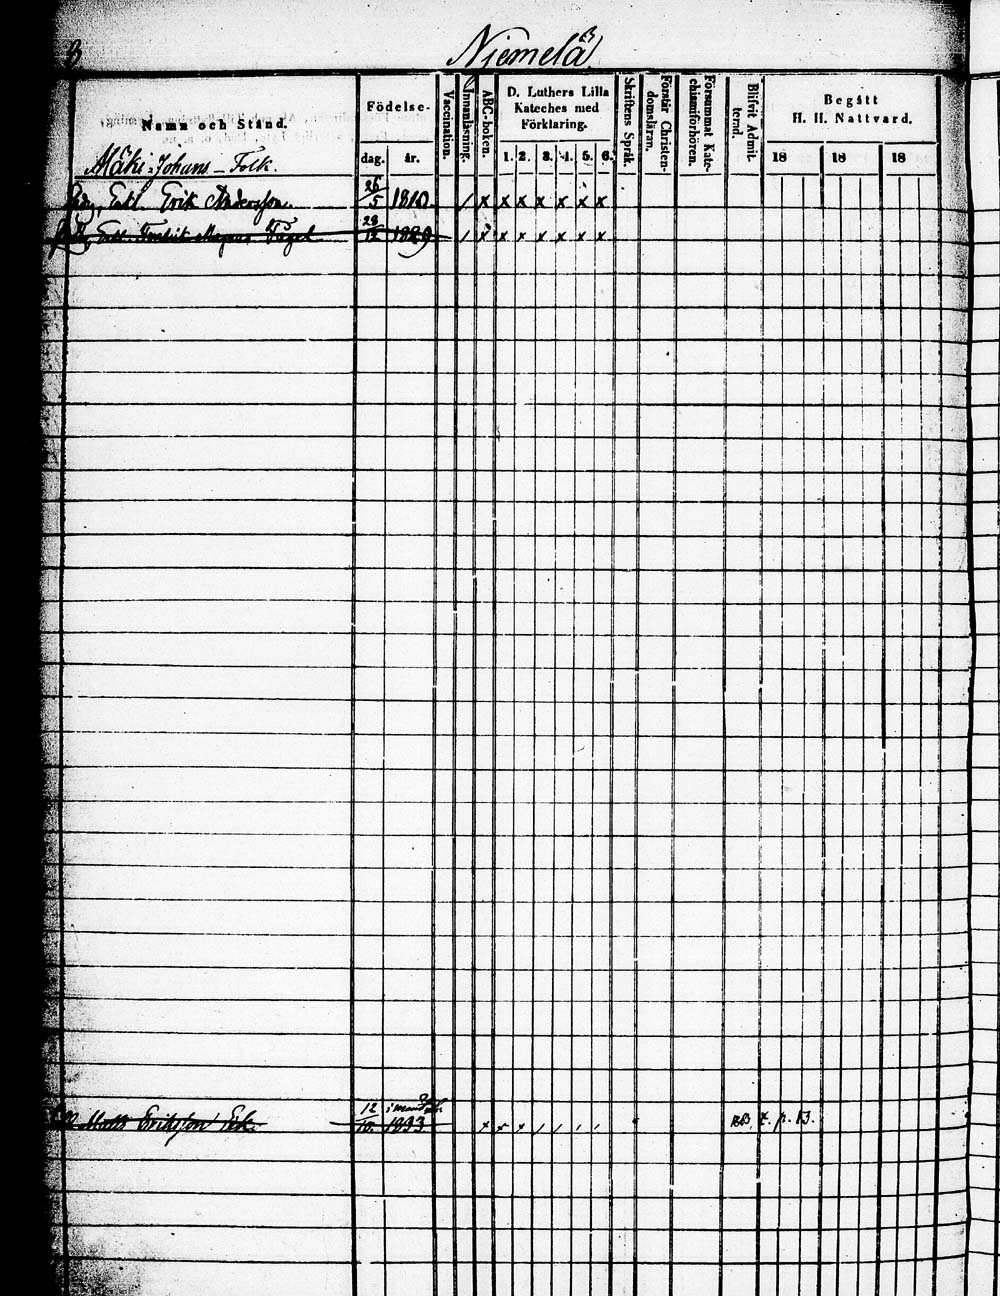 3
Njemelä
Namn och Stånd.
Födelse-
dag. år.
Vaccination.
Innanläsning.
ABC-boken.
D. Luthers Lilla
Kateches med
Förklaring.
1. 2. 3. 4. 5. 6.
Skriftens Språk.
Förstår Christen-
domsläran.
Försummat Kate-
chismiförhören.
Blifvit Admit-
terad.
Begått
H. H. Nattvard.
18 18 18
Mäki-Johans-Folk.
Erik Andersson 26/5 1810. / x x x x x x x
Fredrik Magnus 28/12 1829 / x x x x x x x
Matts Eriksson Ek. 12/10. 1833 x x x / / / / p. 13.